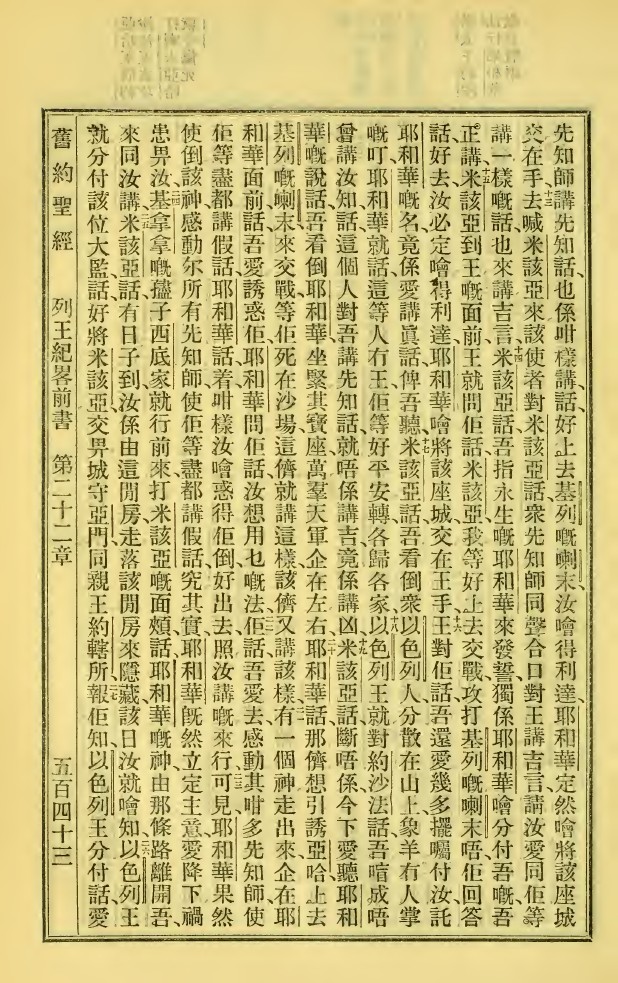 先知師講先知話、也係咁樣講話、好上去基列嘅喇末、汝噲得利達、耶和華定然噲將該座城
交在手去喊米該亞來該使者對米該亞話衆先知師同聲合口對王講吉言請汝愛同佢等
講一樣嘅話也來講吉言、米該亞話、吾指永生嘅耶和華來發誓獨係耶和華噲分付吾嘅吾
正講、米該亞到王嘅面前王就問佢話米該亞、我等好上去交戰攻打基列嘅喇末唔佢回答
話好去汝必定噲得利達、耶和華噲將該座城交在王手、王對佢話吾還愛幾多擺囑付汝託
耶和華嘅名竟係愛講眞話、俾吾聽、米該亞話吾看倒衆以色列人分散在山上象羊冇人掌
嘅叮耶和華就話這等人冇王佢等好平安轉各歸各家、以色列王就對約沙法話吾喧成唔
曾講汝知話這個人對吾講先知話就唔係講吉竟係講凶、米該亞話斷唔係今下愛聽耶和
華嘅說話、吾看倒耶和華坐緊其寶座萬羣天軍企在左右、耶和華話那儕想引誘亞哈上去
基列嘅喇末來交戰等佢死在沙場這儕就講這樣該儕又講該樣、有一個神走出來企在耶
和華面前話吾愛誘惑佢、耶和華問佢話汝想用乜嘅法佢話吾愛去感動其咁多先知師使
佢等盡都講假話耶和華話着咁樣汝噲惑得佢倒好出去照汝講嘅來行、可見耶和華果然
使倒該神感動尔所有先知師使佢等盡都講假話究其實耶和華旣然立定主意愛降下禍
患畀汝、基拿拿嘅孻子西底家就行前來打米該亞嘅面頰話、耶和華嘅神由那條路離開吾、
來同汝講、米該亞話、有日子到汝係由這間房走落該間房來隱藏該日汝就噲知、以色列王
就分付該位大監、話好將米該亞交畀城守亞門同親王約轄所、報佢知、以色列王分付話、愛
舊約聖經 列王紀畧前書 第二十二章 五百四十三